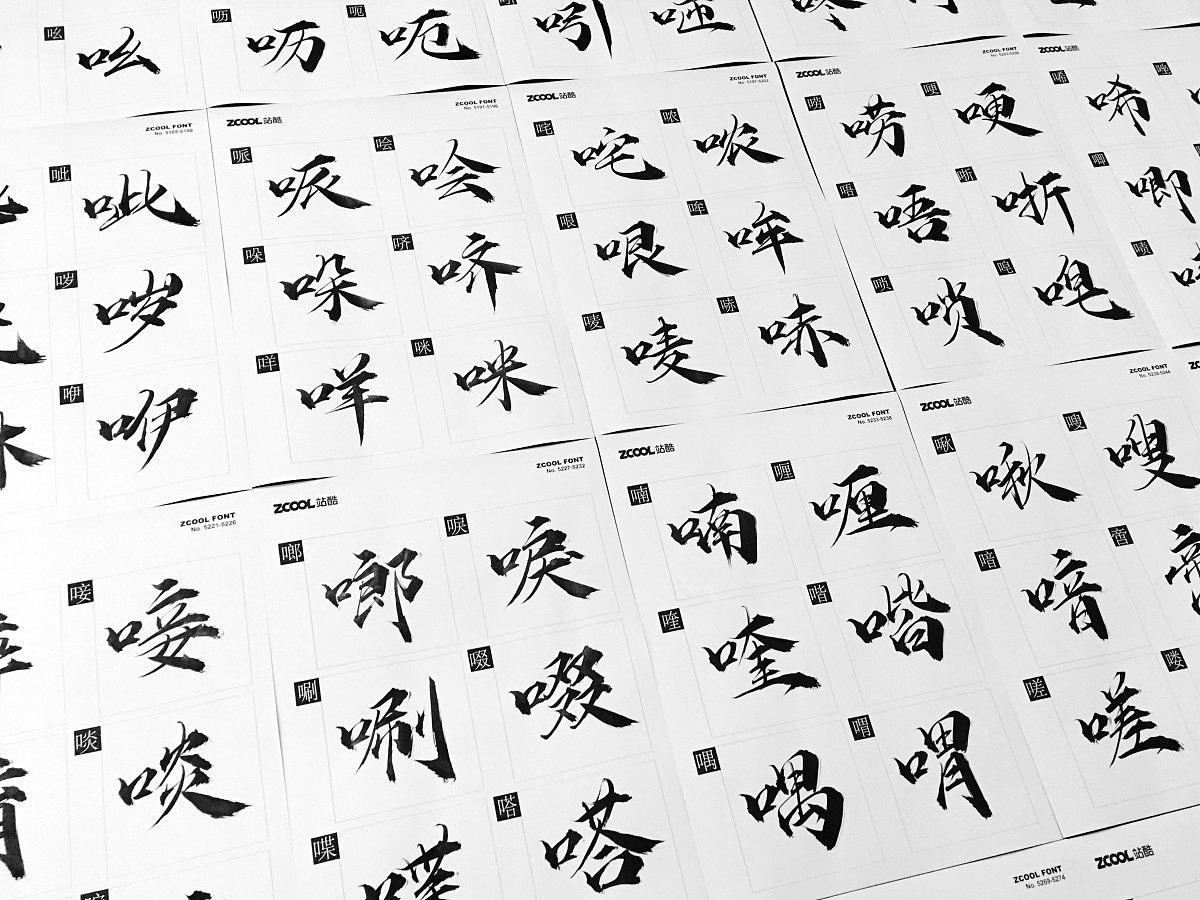 吆 吆
呖 呖 呃 呃
吲
ZCOOL FONT
No. 5185-5190
呲 呲
哕 哕
咿 咿
ZCOOL 站酷
ZCOOL FONT
No. 5191-5196
哌 哌 哙 哙
哚 哚 哜 哜
咩 咩 咪 咪
ZCOOL 站酷
ZCOOL FONT
No. 5197-5202
咤 咤 哝 哝
哏 哏 哞 哞
唛 唛 哧 哧
ZCOOL 站酷
ZCOOL FONT
唠 唠 哽 哽
唔 唔 哳 哳
唢 唢 唣 唣
ZCOOL 站酷
唏 唏
唧 唧
啧
ZCOOL FONT
No. 5221-5226
唼 唼
啖 啖
ZCOOL 站酷
ZCOOL FONT
No. 5227-5232
啷 啷 唳 唳
唰 唰 啜 啜
喋 喋 嗒 嗒
ZCOOL 站酷
ZCOOL FONT
No. 5233-5238
喃 喃 喱 喱
喹 喹 喈 喈
喁 喁 喟 喟
ZCOOL 站酷
ZCOOL FONT
No. 5239-5244
啾 啾 嗖 嗖
喑 喑 啻 啻
嗟 嗟 喽
ZCOOL FONT
No. 5269-5274
ZCOOL 站酷